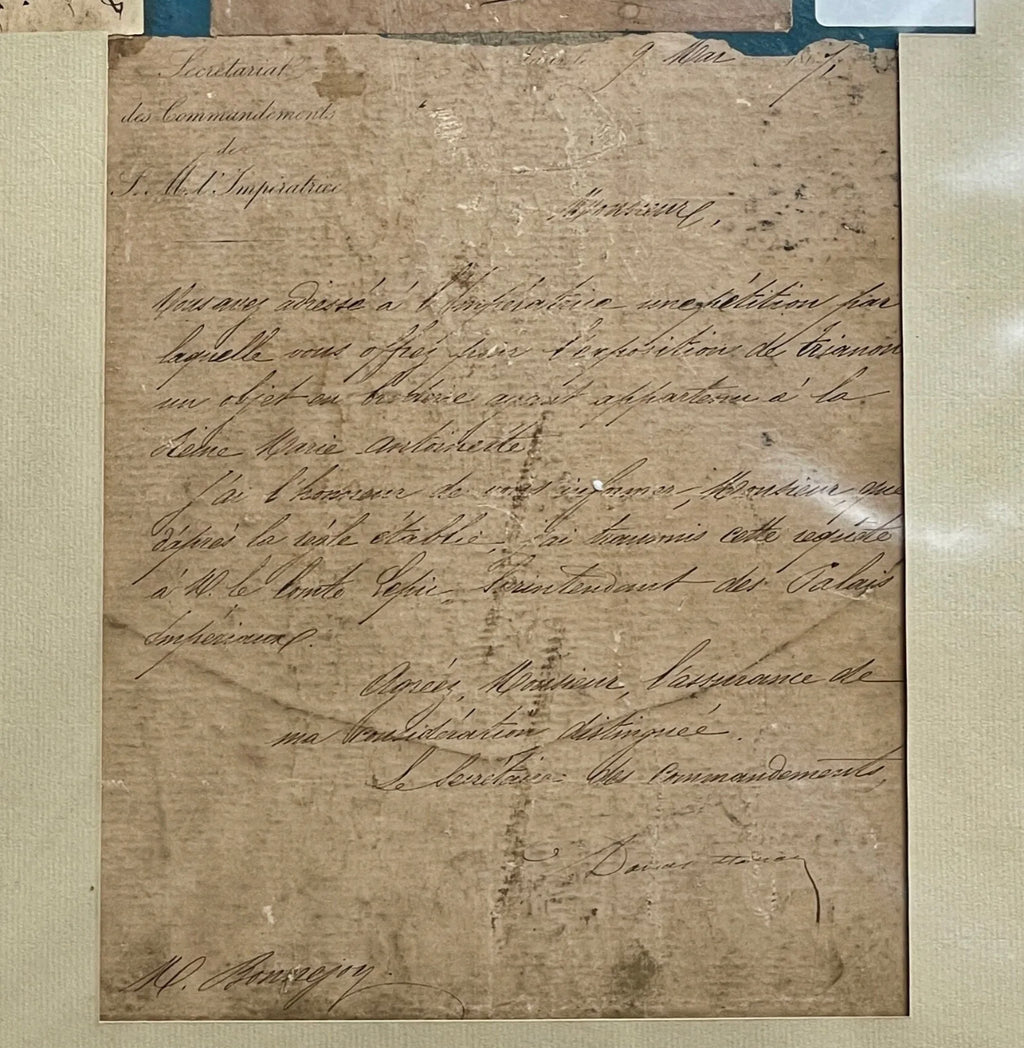 Secrétariat
des Commandements
de
S. M. l'Impératrice
9 Mai 1867
Monsieur,
Vous avez adressé à l'Impératrice une pétition par
laquelle vous offrez pour l'exposition de trianon
un objet en broderie ayant appartenu à la
reine Marie antoinette
J'ai l'honneur de vous informer, Monsieur, que
d'après la règle établie, j'ai transmis cette requête
à M. le Comte Lepic, Surintendant des Palais
Impériaux.
Agréez, Monsieur, l'assurance de
ma considération distinguée.
Le Secrétaire des commandements,
Damas
M. Bonnejoy.